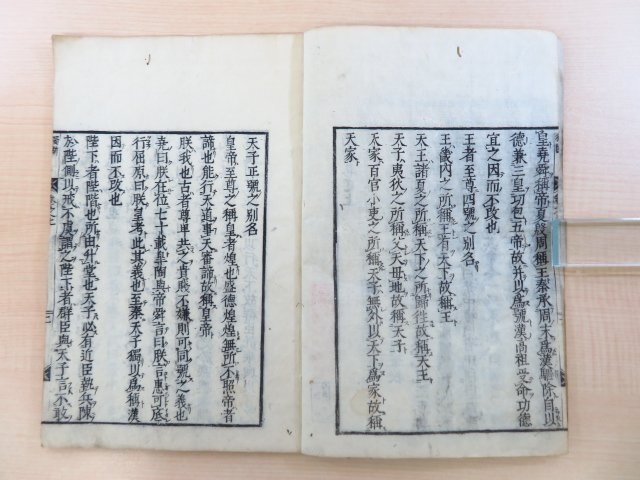 皇堯舜稱帝夏殷周稱王秦承周末爲漢驅除自以
德兼三皇功包五帝故并以爲號漢高祖受命功德
宜之因而不改也
王者至尊四號之別名
王畿内之所稱王有天下故稱王
天王諸夏之所稱天下之所歸往故稱天王
天子夷狄之所稱父天母地故稱天子
天家百官小吏之所稱天子無外以天下爲家故稱
天家
天子正號之別名
皇帝至尊之稱皇者煌也盛德煌煌無所不照帝者
諦也能行天道事天審諦故稱皇帝
朕我也古者尊卑共之貴賤不嫌則可同號之義也
堯曰朕在位七十載皋陶與帝舜言曰朕言惠可底
行屈原曰朕皇考此其義也至秦天子獨以爲稱漢
因而不改也
陛下者陛階也所由升堂也天子必有近臣執兵陳
於陛側以戒不虞謂之陛下者群臣與天子言不敢